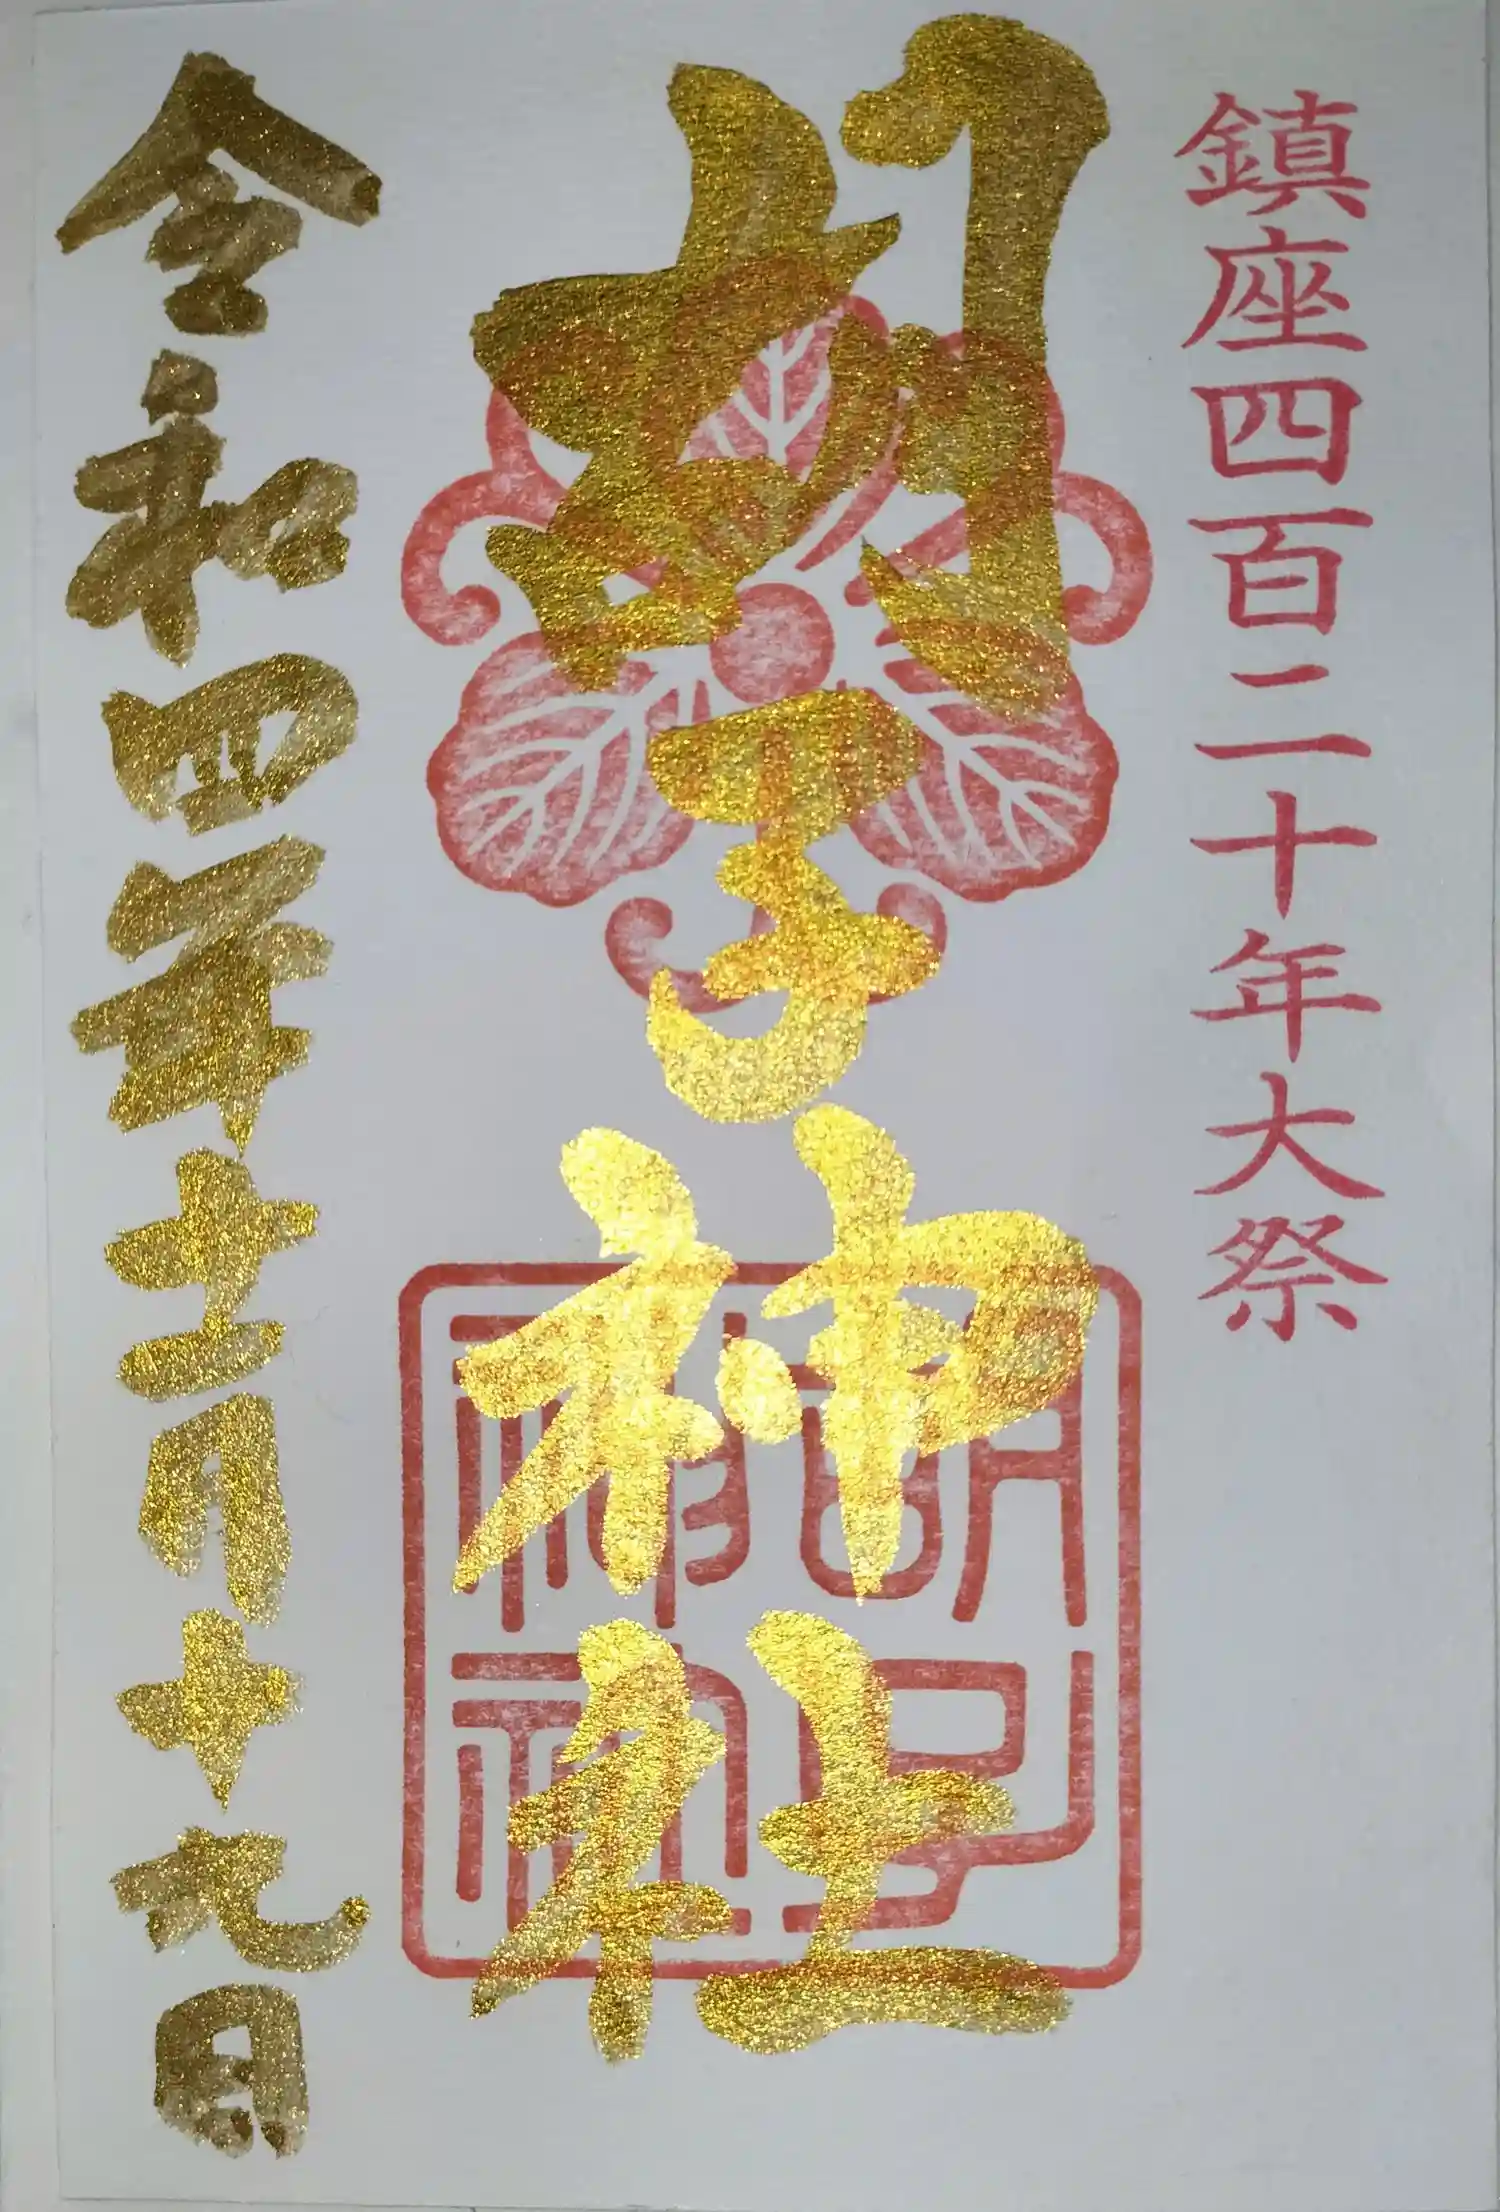 鎮座四百二十年大祭
胡子神社
胡子神社
令和四年十一月十九日